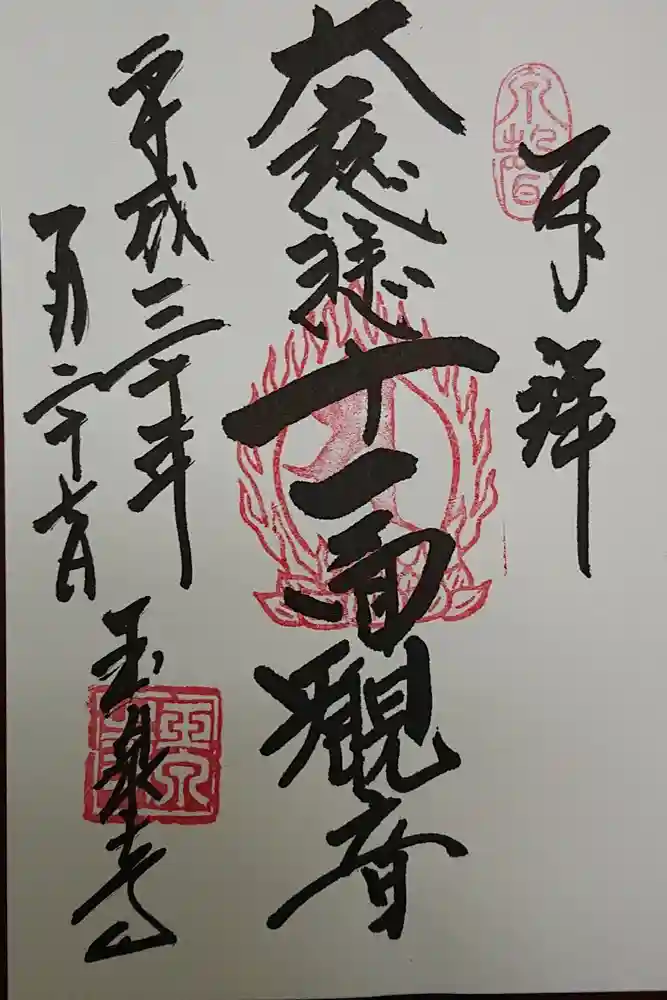 奉拝
大慈悲十一面観音
平成三十年
五月二十七日
玉泉寺